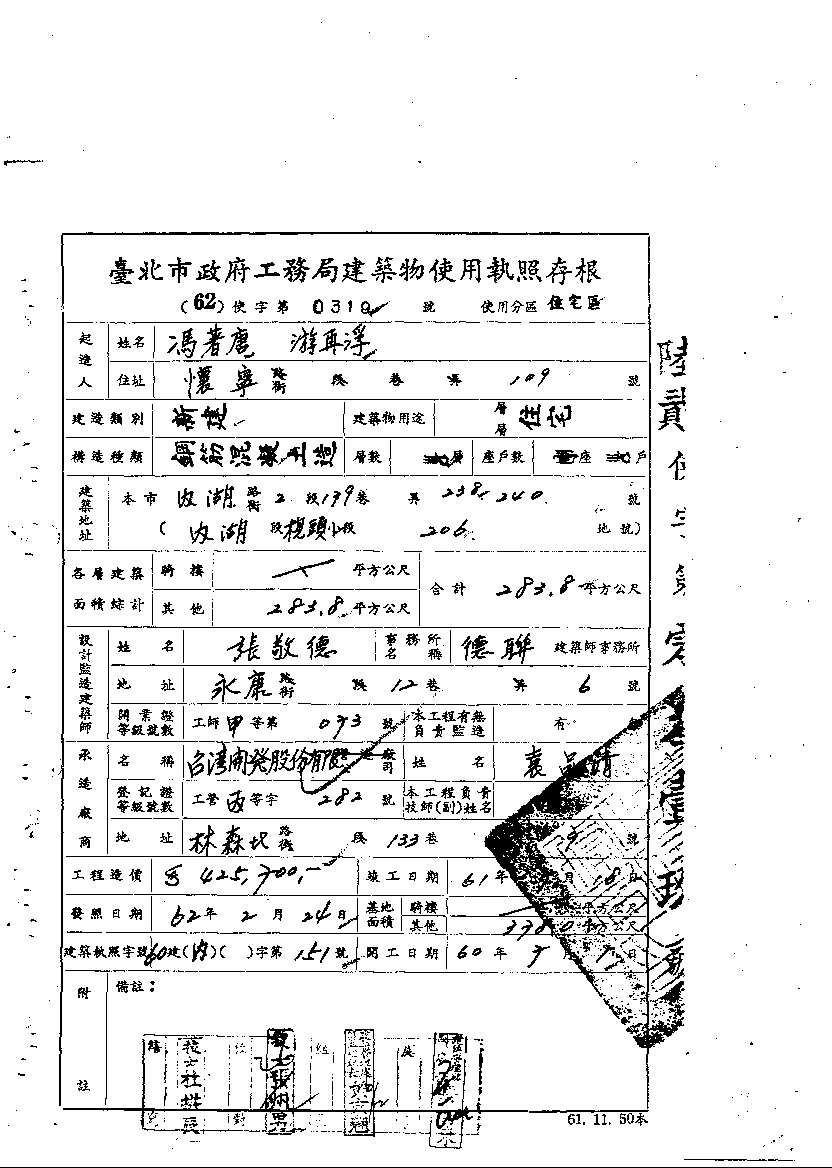 臺北市政府工務局建築物使用執照存根
(62)使字第 0319 號 使用分區 住宅區
起造人 姓名 馮著唐 游再浮
住址 懷寧 路街 段 巷 弄 109 號
建造類別 新建 建築物用途 層層 住宅
構造種類 鋼筋混凝土造 層數 層 座戶數 座 戶
建築地址 本市 內湖 路街 2 段 139 巷 弄 238, 240 號
( 內湖 段 小段 206 地號)
各層建築面積綜計 騎樓 平方公尺 合計 283.8 平方公尺
其他 283.8 平方公尺
設計監造建築師 姓名 張敬德 事務所名稱 德聯 建築師事務所
地址 永康 路街 段 12 巷 弄 6 號
開業證等級號數 工師 甲 等第 073 號 本工程有無負責監造 有
承造廠商 名稱 台湾開發股份有限 公司 姓名 袁
登記證等級號數 工管 丙 等字 282 號 本工程負責技師(副)姓名
地址 林森北 路街 段 133 巷 9 號
工程造價 425,700,- 竣工日期 61 年 18 日
發照日期 62 年 2 月 24 日 基地面積 騎樓 平方公尺
其他 平方公尺
建築執照字號 60 建(內)( )字第 151 號 開工日期 60 年 月 日
附註 備註：
技士杜
61.11.50本
陸貳使字第零